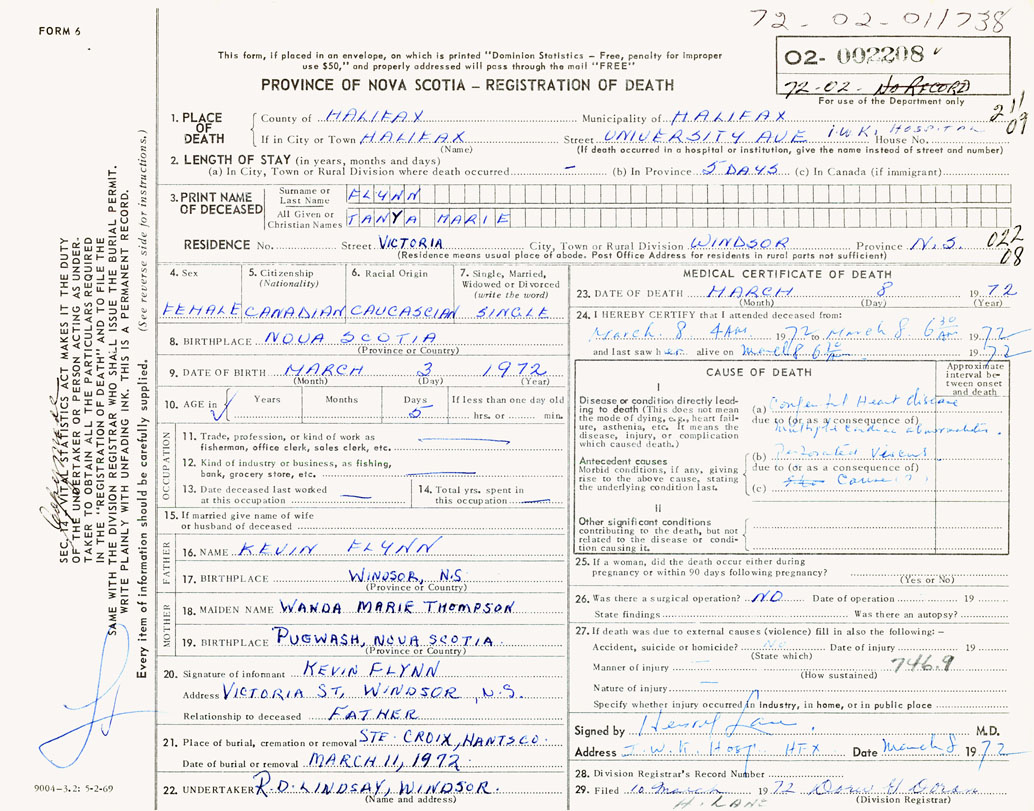 FORM 6
72-02-011738
This form, if placed in an envelope, on which is printed "Dominion Statistics – Free, penalty for improper
use $50," and properly addressed will pass through the mail "FREE"
PROVINCE OF NOVA SCOTIA – REGISTRATION OF DEATH
02- 002208
72-02- NO RECORD
For use of the Department only
211
09
1. PLACE OF DEATH
County of HALIFAX Municipality of HALIFAX
If in City or Town HALIFAX Street UNIVERSITY AVE I.W.K. HOSPITAL House No.
(Name) (If death occurred in a hospital or institution, give the name instead of street and number)
2. LENGTH OF STAY (in years, months and days)
(a) In City, Town or Rural Division where death occurred – (b) In Province 5 DAYS (c) In Canada (if immigrant)
3. PRINT NAME OF DECEASED
Surname or Last Name FLYNN
All Given or Christian Names TANYA MARIE
RESIDENCE No. Street VICTORIA City, Town or Rural Division WINDSOR Province N.S.
022
08
(Residence means usual place of abode. Post Office Address for residents in rural parts not sufficient)
4. Sex
FEMALE
5. Citizenship
(Nationality)
CANADIAN
6. Racial Origin
CAUCASCIAN
7. Single, Married,
Widowed or Divorced
(write the word)
SINGLE
8. BIRTHPLACE NOVA SCOTIA
(Province or Country)
9. DATE OF BIRTH MARCH 3 1972
(Month) (Day) (Year)
10. AGE in
Years Months Days If less than one day old
5 hrs. or min.
OCCUPATION
11. Trade, profession, or kind of work as
fisherman, office clerk, sales clerk, etc.
12. Kind of industry or business, as fishing,
bank, grocery store, etc.
13. Date deceased last worked
at this occupation
14. Total yrs. spent in
this occupation
15. If married give name of wife
or husband of deceased
FATHER
16. NAME KEVIN FLYNN
17. BIRTHPLACE WINDSOR, N.S
(Province or Country)
MOTHER
18. MAIDEN NAME WANDA MARIE THOMPSON
19. BIRTHPLACE PUGWASH, NOVA SCOTIA
(Province or Country)
20. Signature of informant KEVIN FLYNN
Address VICTORIA ST, WINDSOR, N.S.
Relationship to deceased FATHER
21. Place of burial, cremation or removal STE. CROIX, HANTS CO.
Date of burial or removal MARCH 11, 1972
22. UNDERTAKER R.D. LINDSAY, WINDSOR.
(Name and address)
MEDICAL CERTIFICATE OF DEATH
23. DATE OF DEATH MARCH 8 1972
(Month) (Day) (Year)
24. I HEREBY CERTIFY that I attended deceased from:
March. 8 4AM. 1972 to March 8. 6 30 AM 1972
and last saw her alive on March 8 6 30 AM 1972
CAUSE OF DEATH
Approximate
interval be-
tween onset
and death
I
Disease or condition directly lead-
ing to death (This does not mean
the mode of dying, e.g., heart fail-
ure, asthenia, etc. It means the
disease, injury, or complication
which caused death.)
(a) Congenital Heart disease
due to (or as a consequence of)
multiple cardiac abnormalities.
Antecedent causes
Morbid conditions, if any, giving
rise to the above cause, stating
the underlying condition last.
(b) Perforated Viscus
due to (or as a consequence of)
(c) Cause ?
II
Other significant conditions
contributing to the death, but not
related to the disease or condi-
tion causing it.
25. If a woman, did the death occur either during
pregnancy or within 90 days following pregnancy?
(Yes or No)
26. Was there a surgical operation? NO Date of operation 19
State findings Was there an autopsy?
27. If death was due to external causes (violence) fill in also the following: –
Accident, suicide or homicide? No Date of injury 19
(State which)
Manner of injury 746.9
(How sustained)
Nature of injury
Specify whether injury occurred in Industry, in home, or in public place
Signed by M.D.
Address I.W.K Hosp HFX Date March 8 1972
28. Division Registrar's Record Number
29. Filed 10 March 1972
(Division Registrar)
H. LANE
SEC. 14, VITAL STATISTICS ACT MAKES IT THE DUTY
OF THE UNDERTAKER OR PERSON ACTING AS UNDER-
TAKER TO OBTAIN ALL THE PARTICULARS REQUIRED
IN THE "REGISTRATION OF DEATH" AND TO FILE THE
SAME WITH THE DIVISION REGISTRAR WHO SHALL ISSUE THE BURIAL PERMIT.
WRITE PLAINLY WITH UNFADING INK. THIS IS A PERMANENT RECORD.
Every item of information should be carefully supplied. (See reverse side for instructions.)
9004-3.2: 5-2-69